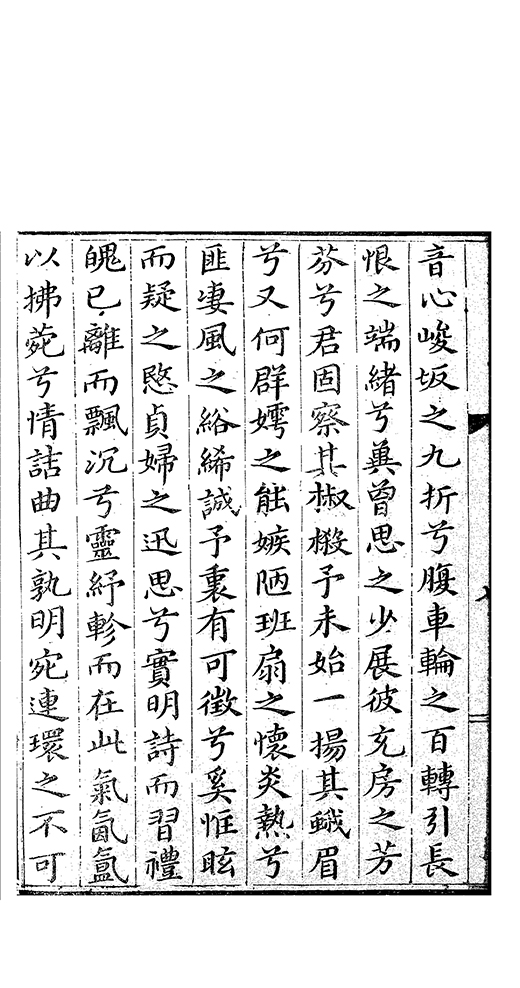 音心峻坂之九折兮腹車輪之百轉引長
恨之端緒兮冀曾思之少展彼充房之芳
芬兮君固察其椒樧予未始一揚其蛾眉
兮又何群嫮之能嫉陋班扇之懷炎熱兮
匪凄風之綌絺誠予裏有可徵兮奚惟眩
而疑之愍貞婦之迅思兮實明詩而習禮
魄已離而飄沉兮靈紆軫而在此氣氤氳
以拂菀兮情詰曲其孰明宛連環之不可